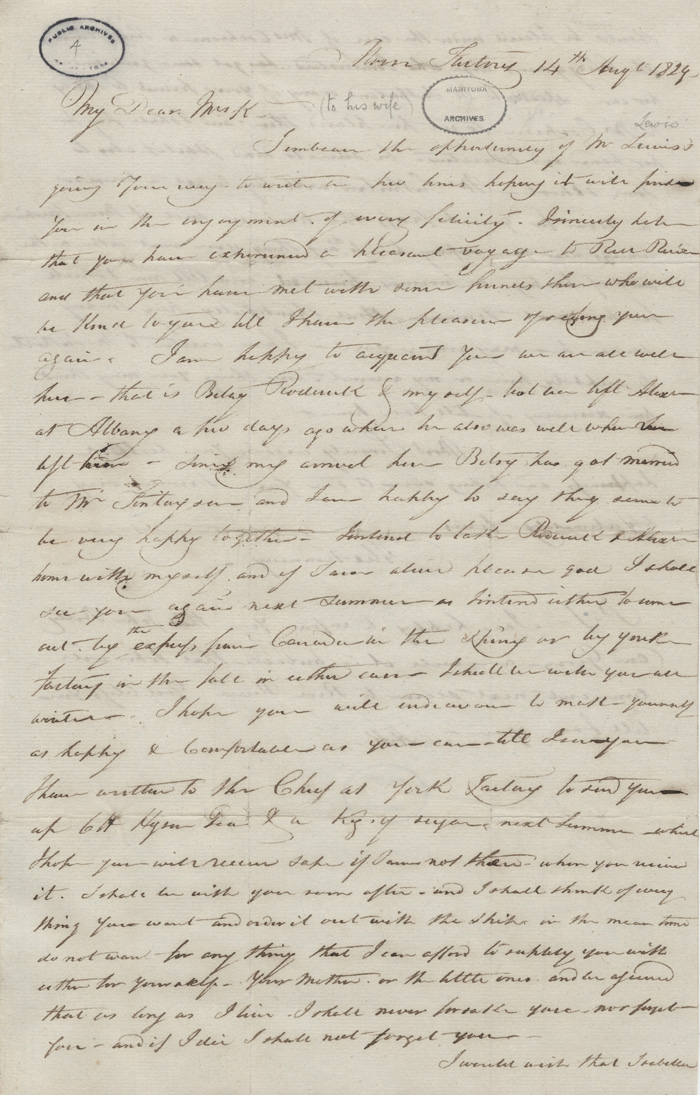 PUBLIC ARCHIVES
4
Moose Factory 14th Augt 1829
My Dear Mrs K
(to his wife)
MANITOBA
ARCHIVES
Lewis'
I embrace the opportunity of Mr Lewis's
going your way to write a few lines hoping it will find
you in the enjoyment of every felicity. I sincerely hope
that you have experienced a pleasant voyage to Red River
and that you have met with some friends there who will
be kind to you till I have the pleasure of seeing you
again. I am happy to acquaint you we are all well
here - that is Betsy Roderick & myself but we left Alexr
at Albany a few days ago where he also was well when we
left him - Since my arrival here Betsy has got married
to Mr Finlayson and I am happy to say they seem to
be very happy together - I intend to take Roderick & Alexr
home with myself and if I am alive please god I shall
see you again next summer as I intend either to come
out by the express from Canada in the Spring or by York
Factory in the fall in either case I shall be with you all
winter - I hope you will endeavour to make yourself
as happy & comfortable as you can till I see you
I have written to the Chief at York Factory to send you
up 6 lb Hyson Tea & a Keg of sugar next summer which
I hope you will receive safe if I am not there when you receive
it. I shall be with you soon after - and I shall think of every
thing you want and order it out with the Ship in the mean time
do not want for any thing that I can afford to supply you with
either for yourself - Your Mother or the little ones and be assured
that as long as I live I shall never forsake you nor forget
you - and if I die I shall not forget you -
I would wish that Isabella